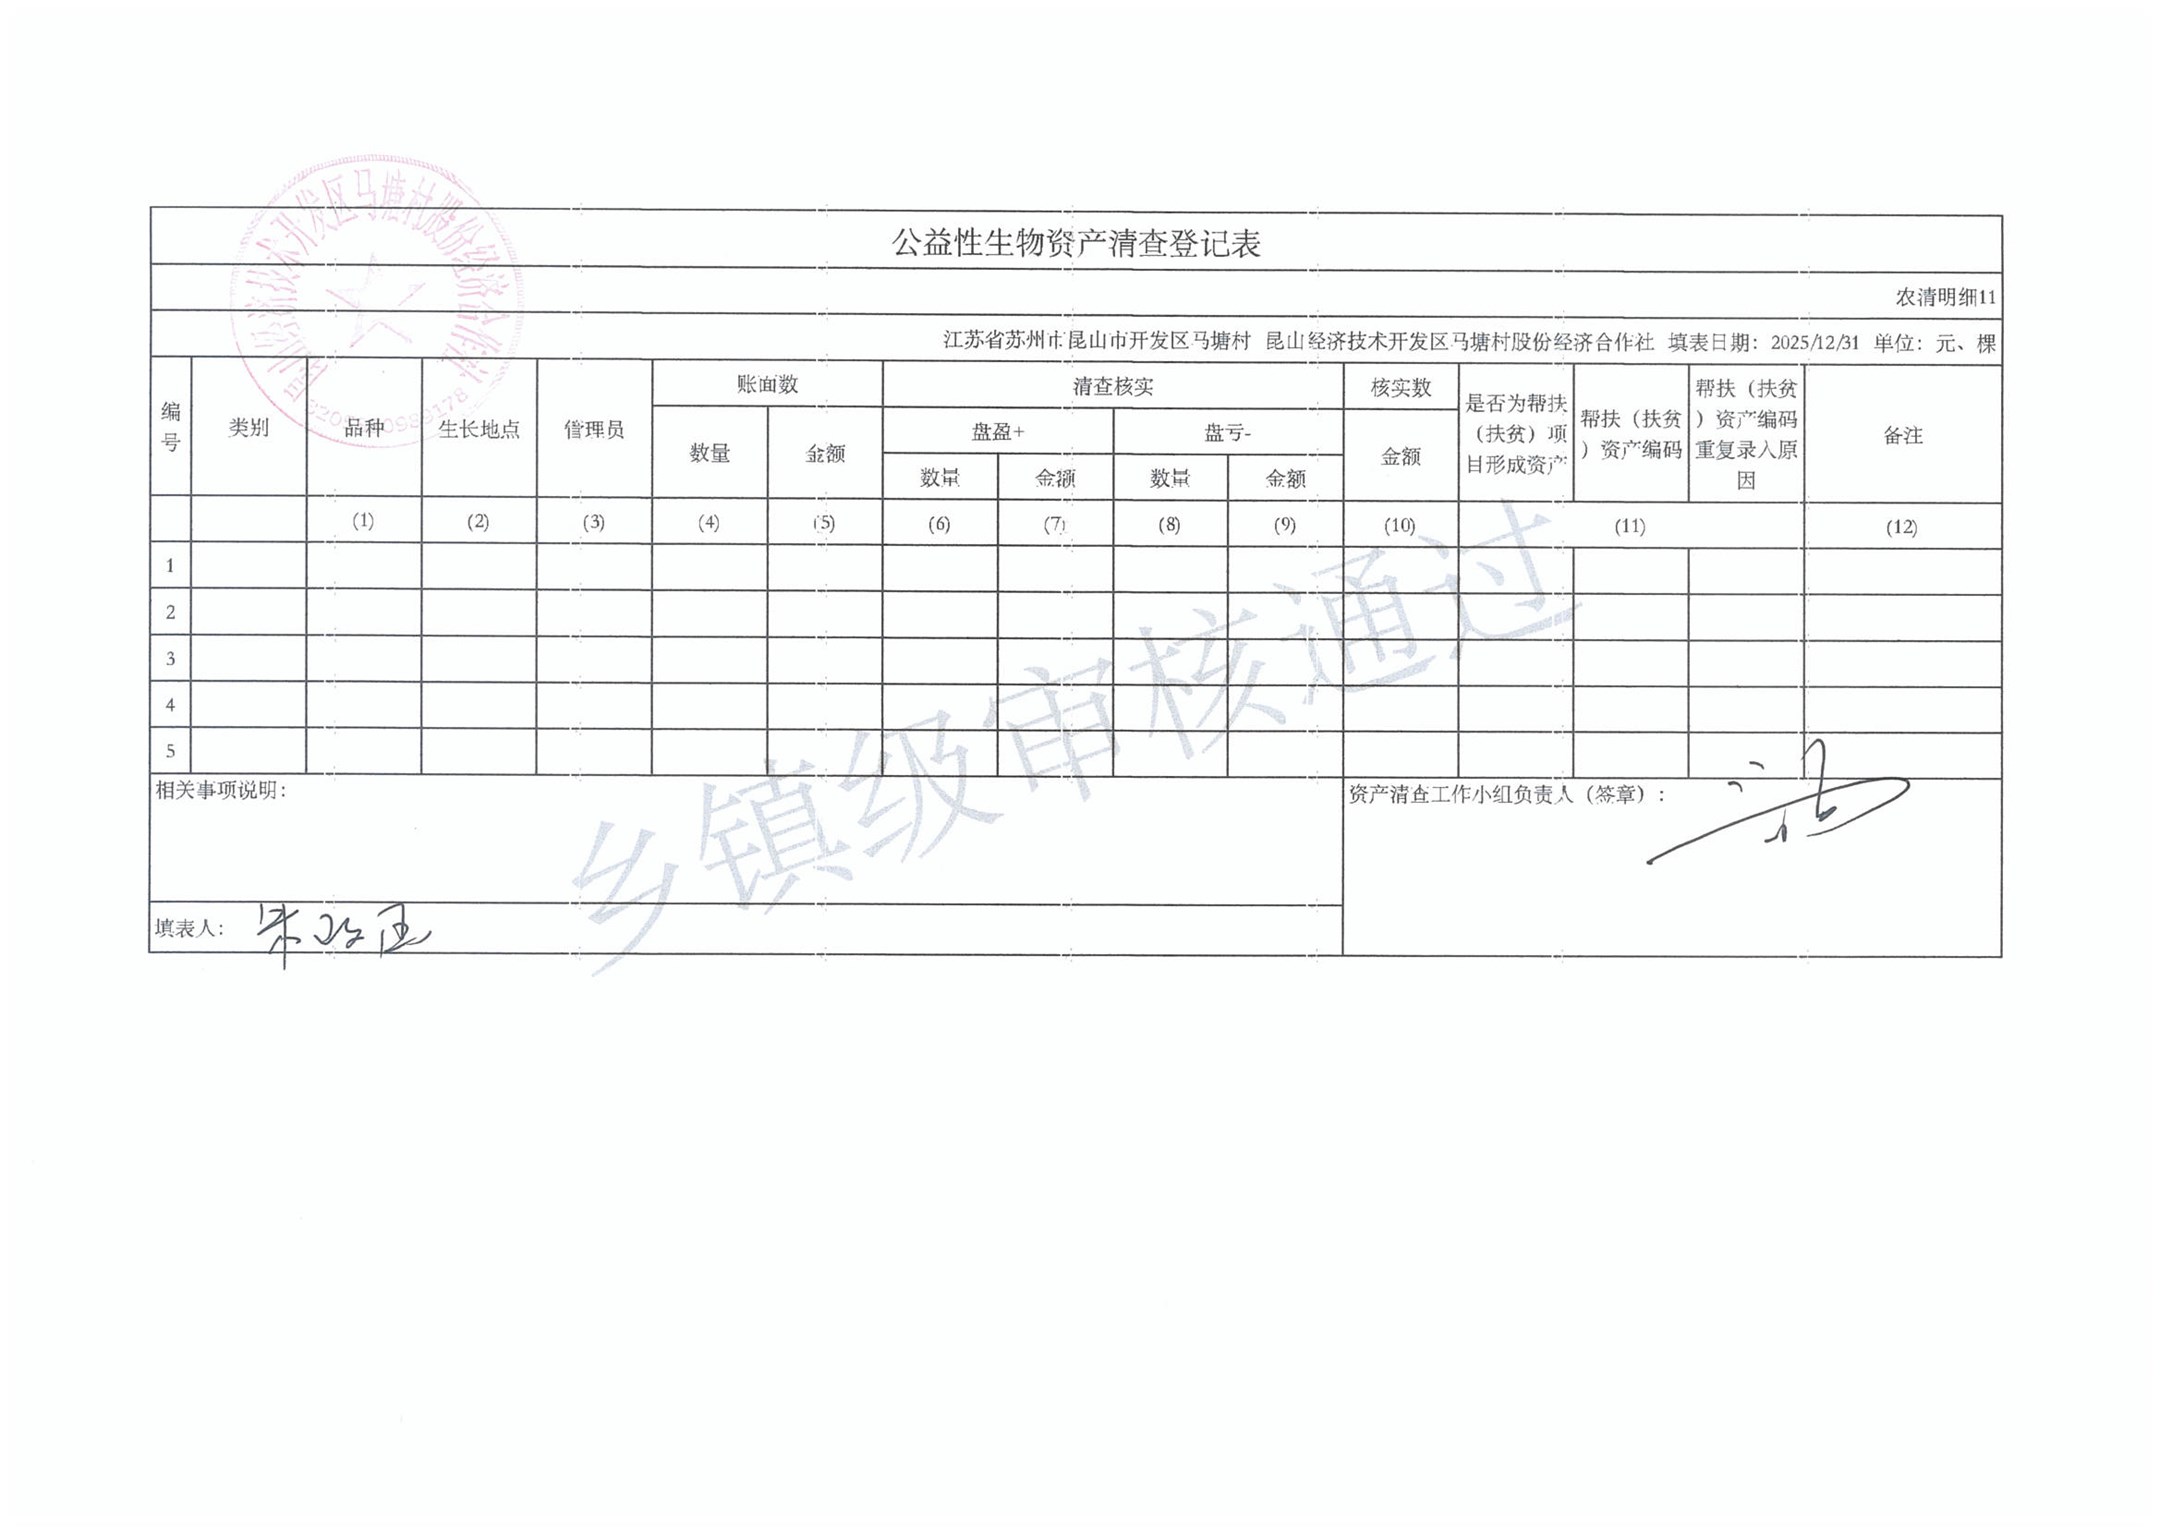 公益性生物资产清查登记表
农清明细11
江苏省苏州市昆山市开发区马塘村 昆山经济技术开发区马塘村股份经济合作社 填表日期：2025/12/31 单位：元、棵
编号 类别 品种 生长地点 管理员 账面数 清查核实 核实数 是否为帮扶（扶贫）项目形成资产 帮扶（扶贫）资产编码 帮扶（扶贫）资产编码重复录入原因 备注
数量 金额 盘盈+ 盘亏- 金额
数量 金额 数量 金额
(1) (2) (3) (4) (5) (6) (7) (8) (9) (10) (11) (12)
1
2
3
4
5
相关事项说明：
资产清查工作小组负责人（签章）：
填表人：
乡镇级审核通过
昆山经济技术开发区马塘村股份经济合作社